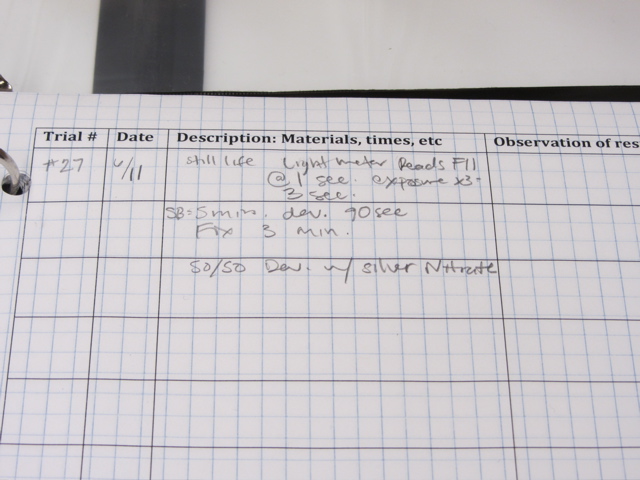 Trial # Date Description: Materials, times, etc Observation of res
#27 4/11 still life Light meter Reads F11
@ 1 sec. exposure x3=
3 sec.
SB=5min. dev. 90sec
Fix 3 min.
50/50 Dev. w/ silver Nitrate